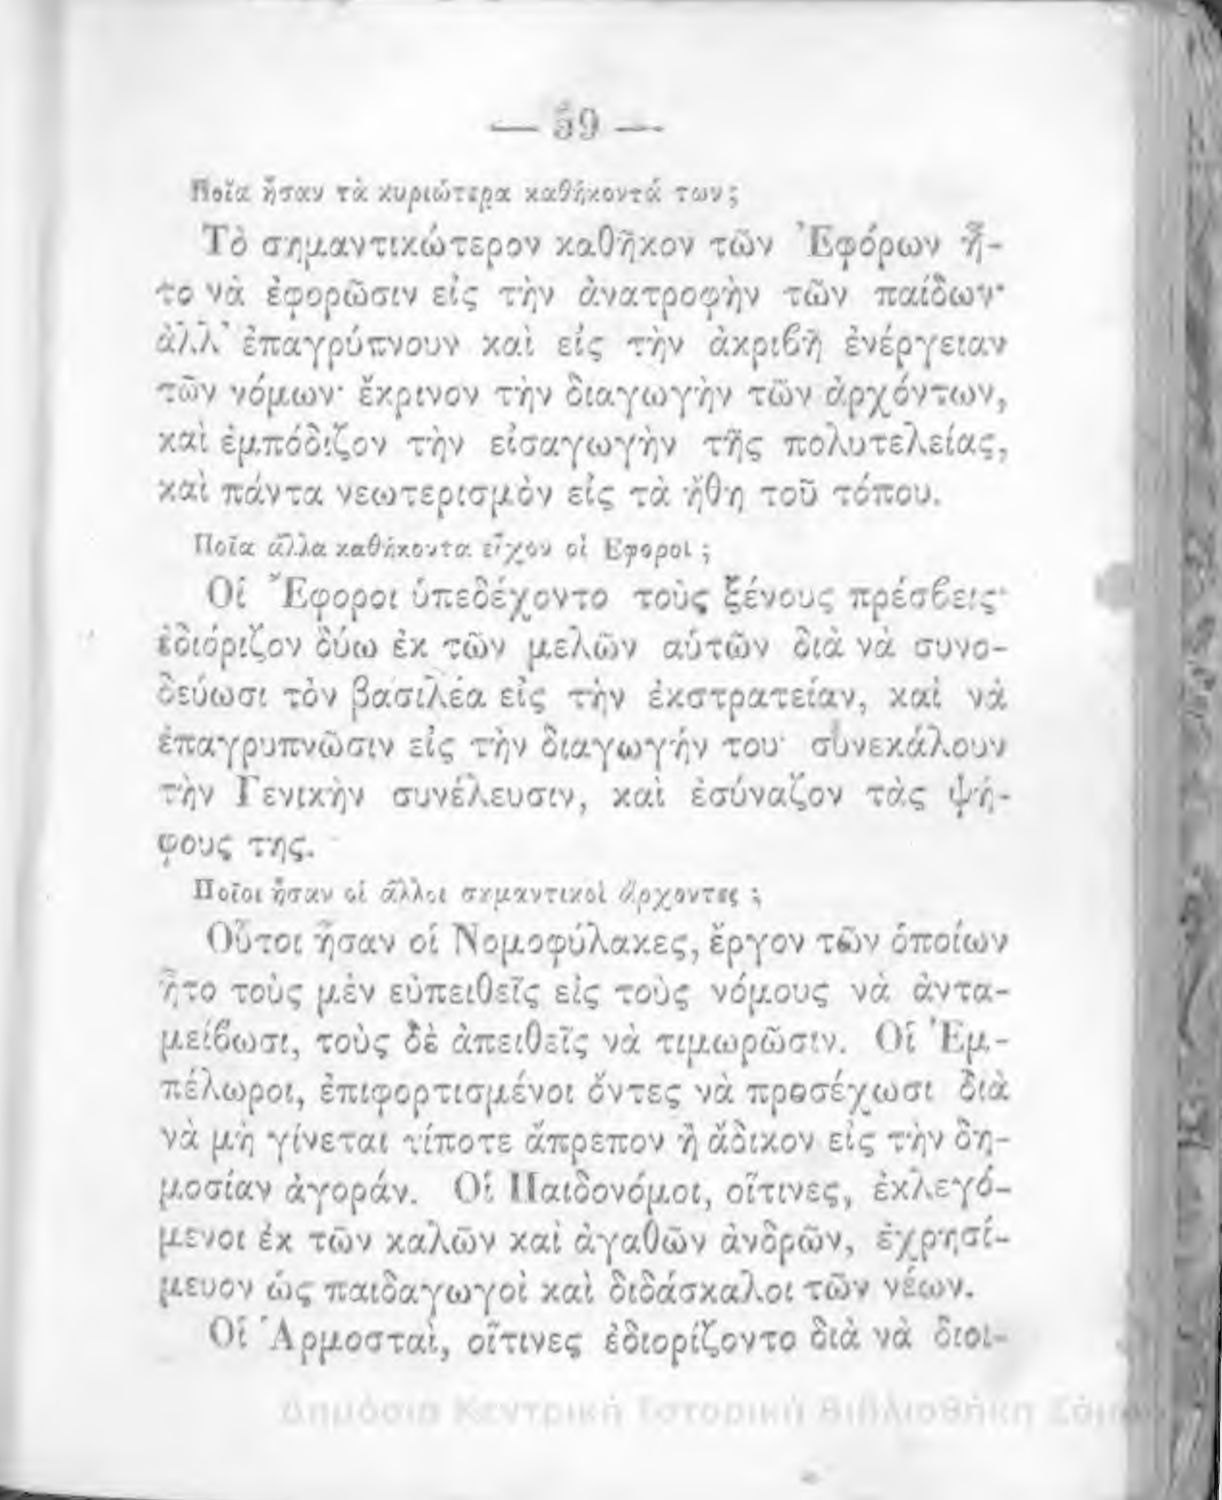 — 59 —
Ποῖα ἦσαν τὰ κυριώτερα καθήκοντά των ;
Τὸ σημαντικώτερον καθῆκον τῶν Ἐφόρων ἦ-
το νὰ ἐφορῶσιν εἰς τὴν ἀνατροφὴν τῶν παίδων·
ἀλλ' ἐπαγρύπνουν καὶ εἰς τὴν ἀκριϐῆ ἐνέργειαν
τῶν νόμων· ἔκρινον τὴν διαγωγὴν τῶν ἀρχόντων,
καὶ ἐμπόδιζον τὴν εἰσαγωγὴν τῆς πολυτελείας,
καὶ πάντα νεωτερισμὸν εἰς τὰ ἤθη τοῦ τόπου.
Ποῖα ἄλλα καθήκοντα εἶχον οἱ Εφοροι ;
Οἱ Ἔφοροι ὑπεδέχοντο τοὺς ξένους πρέσϐεις·
ἐδιόριζον δύω ἐκ τῶν μελῶν αὐτῶν διὰ νὰ συνο-
δεύωσι τὸν βασιλέα εἰς τὴν ἐκστρατείαν, καὶ νὰ
ἐπαγρυπνῶσιν εἰς τὴν διαγωγήν του· συνεκάλουν
τὴν Γενικὴν συνέλευσιν, καὶ ἐσύναζον τὰς ψή-
φους της.
Ποῖοι ἦσαν οἱ ἄλλοι σημαντικοὶ ἄρχοντες ;
Οὗτοι ἦσαν οἱ Νομοφύλακες, ἔργον τῶν ὁποίων
ἦτο τοὺς μὲν εὐπειθεῖς εἰς τοὺς νόμους νὰ ἀντα-
μείϐωσι, τοὺς δὲ ἀπειθεῖς νὰ τιμωρῶσιν. Οἱ Ἐμ-
πέλωροι, ἐπιφορτισμένοι ὄντες νὰ προσέχωσι διὰ
νὰ μὴ γίνεται τίποτε ἄπρεπον ἢ ἄδικον εἰς τὴν δη-
μοσίαν ἀγοράν. Οἱ Παιδονόμοι, οἵτινες, ἐκλεγό-
μενοι ἐκ τῶν καλῶν καὶ ἀγαθῶν ἀνδρῶν, ἐχρησί-
μευον ὡς παιδαγωγοὶ καὶ διδάσκαλοι τῶν νέων.
Οἱ Ἁρμοσταὶ, οἵτινες ἐδιορίζοντο διὰ νὰ διοι-
Δημόσια Κεντρική Ιστορική Βιβλιοθήκη